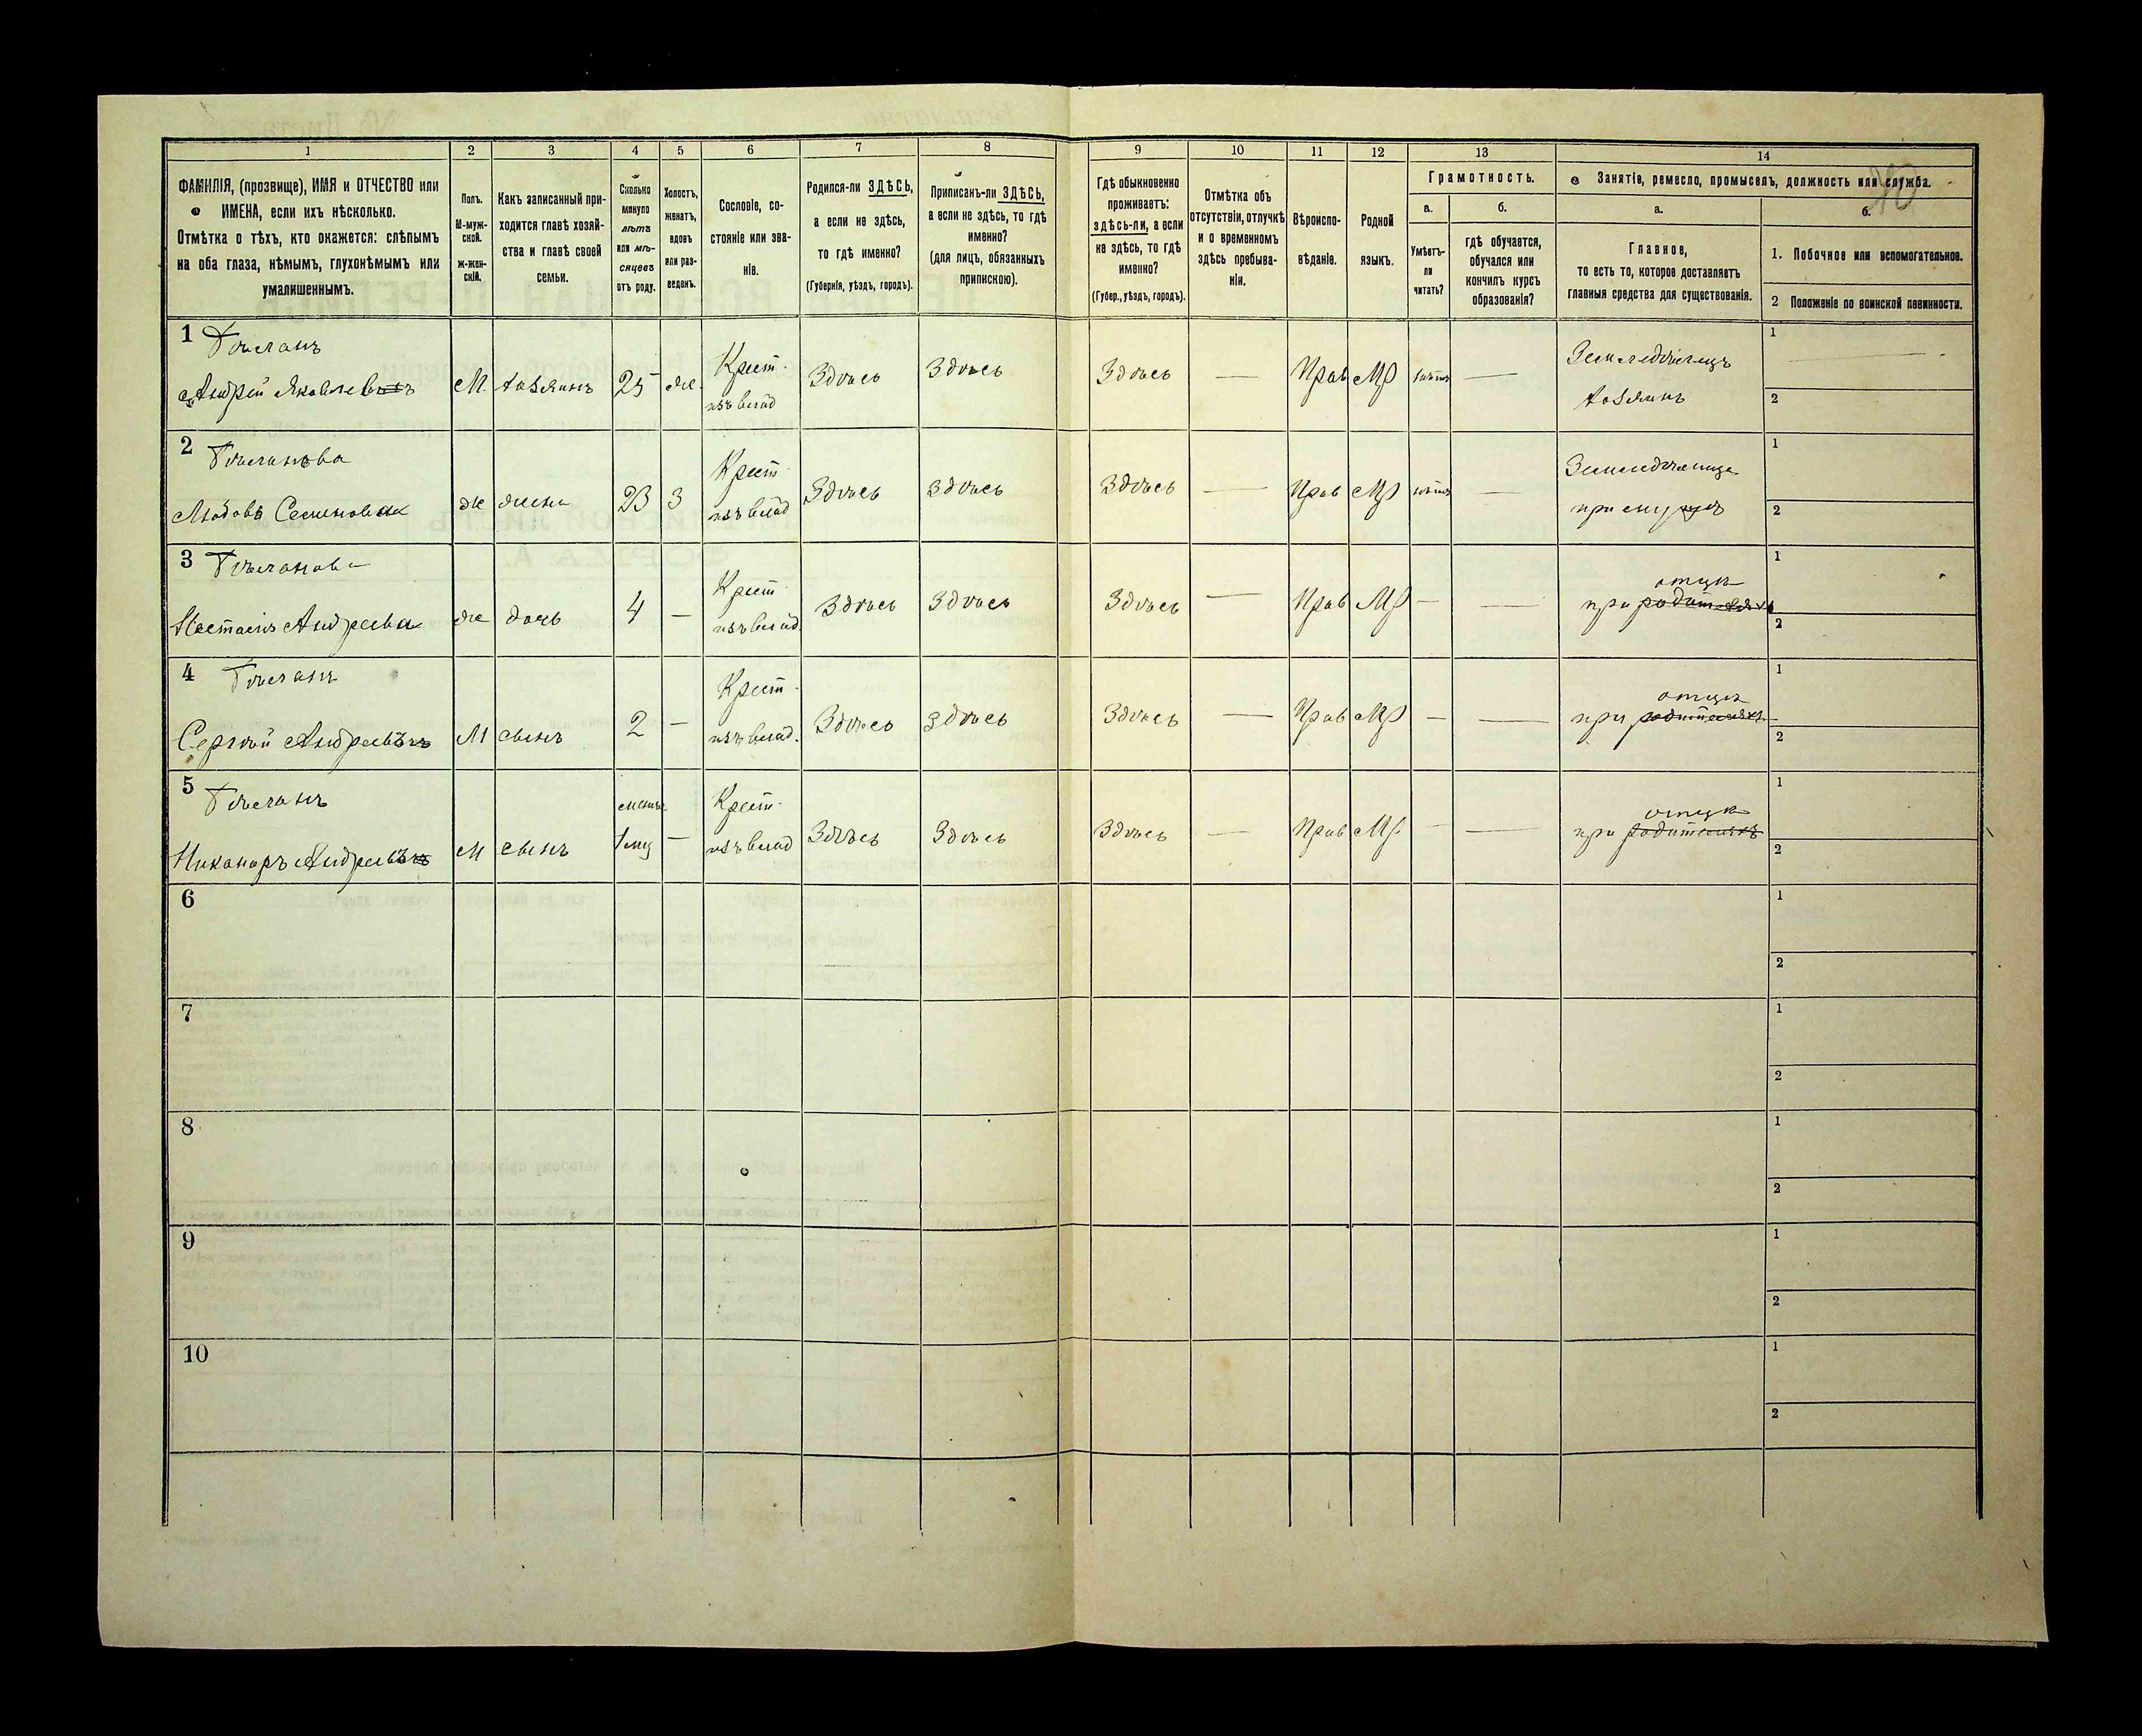 1 2 3 4 5 6 7 8 9 10 11 12 13 14
ФАМИЛІЯ, (прозвище), ИМЯ и ОТЧЕСТВО или
ИМЕНА, если ихъ нѣсколько.
Отмѣтка о тѣхъ, кто окажется: слѣпымъ
на оба глаза, нѣмымъ, глухонѣмымъ или
умалишеннымъ.
Полъ.
М-муж-
ской.
Ж-жен-
скій.
Какъ записанный при-
ходится главѣ хозяй-
ства и главѣ своей
семьи.
Сколько
минуло
лѣтъ
или мѣ-
сяцевъ
отъ роду.
Холостъ,
женатъ,
вдовъ
или раз-
веденъ.
Сословіе, со-
стояніе или зва-
ніе.
Родился-ли ЗДѢСЬ,
а если не здѣсь,
то гдѣ именно?
(Губернія, уѣздъ, городъ).
Приписанъ-ли ЗДѢСЬ,
а если не здѣсь, то гдѣ
именно?
(для лицъ, обязанныхъ
припискою).
Гдѣ обыкновенно
проживаетъ:
здѣсь-ли, а если
не здѣсь, то гдѣ
именно?
(Губер., уѣздъ, городъ).
Отмѣтка объ
отсутствіи, отлучкѣ
и о временномъ
здѣсь пребыва-
ніи.
Вѣроиспо-
вѣданіе.
Родной
языкъ.
Грамотность.
а.
Умѣетъ-
ли
читать?
б.
гдѣ обучается,
обучался или
кончилъ курсъ
образованія?
Занятіе, ремесло, промыселъ, должность или служба.
а.
Главное,
то есть то, которое доставляетъ
главныя средства для существованія.
б.
1. Побочное или вспомогательное.
2 Положеніе по воинской повинности.
1
Андрей Яковлевъ
М. хозяинъ 25 же. Крест. изъ влад Здѣсь Здѣсь Здѣсь — Прав МР нѣтъ — Земледѣлецъ
хозяинъ
1 —
2
2
Любовь Семенова
же жена 23 З Крест. изъ влад Здѣсь Здѣсь Здѣсь — Прав МР нѣтъ —
при мужѣ
1
2
3
Настасия Андреева
же дочь 4 — Крест. изъ влад. Здѣсь Здѣсь Здѣсь — Прав МР — — при родителяхъ отцѣ
1
2
4
Сергѣй Андреевъ
М сынъ 2 — Крест. изъ влад. Здѣсь Здѣсь Здѣсь — Прав МР — — при родителяхъ отцѣ
1
2
5
Никаноръ Андреевъ
М сынъ 1 мц — Крест. изъ влад Здѣсь Здѣсь Здѣсь — Прав МР — — при родителяхъ отцѣ
1
2
6
1
2
7
1
2
8
1
2
9
1
2
10
1
2